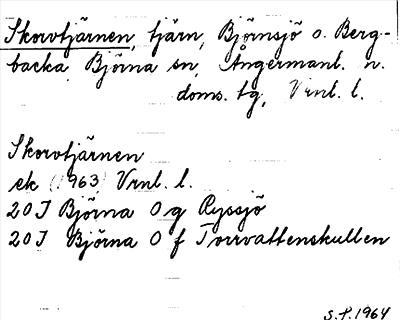 Skorvtjärnen, tjärn, Björnsjö o. Berg-
backa, Björna sn, Ångermanl. n.
doms. tg, Vrnl. l.
Skorvtjärnen
ek (1963) Vrnl. l.
20 I Björna 0 g Ryssjö
20 I Björna 0 f Torrvattenskullen
S.P. 1964